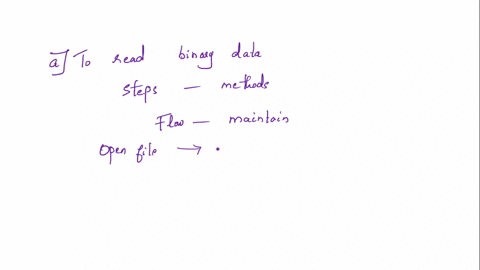 a] To read binary data
steps — methods
Flow — maintain
open file →